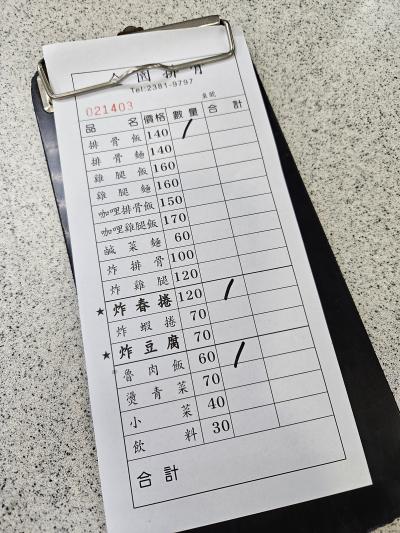 Tel:2381-9797
021403
桌號
品名 價格 數量 合計
排骨飯 140 /
排骨麵 140
雞腿飯 160
雞腿麵 160
咖哩排骨飯 150
咖哩雞腿飯 170
鹹菜麵 60
炸排骨 100
炸雞腿 120
★ 炸春捲 120 /
炸蝦捲 70
★ 炸豆腐 70
魯肉飯 60 /
燙青菜 70
小菜 40
飲料 30
合計